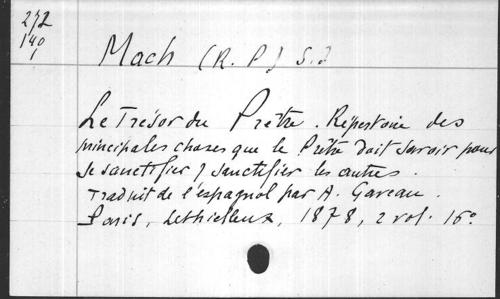 272
140
1
Mach (R. P.) S.J
Le Trésor du Prêtre. Répertoire des
principales choses que le Prêtre doit savoir pour
se sanctifier & sanctifier les autres.
Traduit de l'espagnol par A. Gareau.
Paris, Lethielleux, 1878, 2 vol. 16º